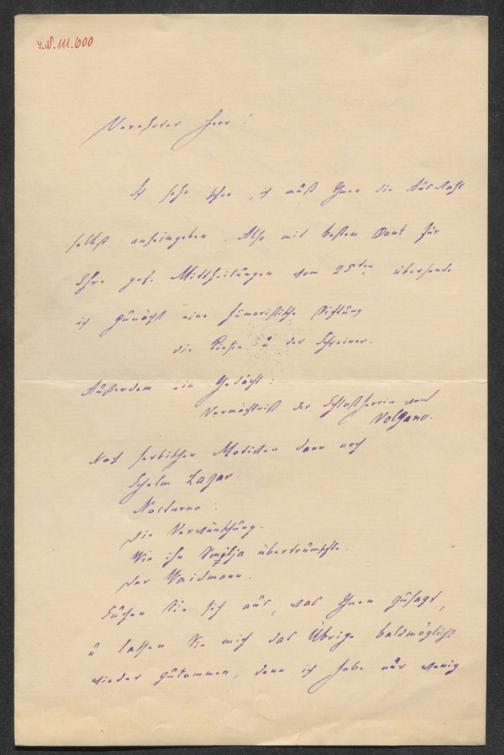 I.N. 111.600
Verehrter Herr!
Ich sehe schon, ich muß Ihnen die Auswahl
selbst anheimgeben. Also mit bestem Dank für
Ihre gef. Mittheilungen vom 25ten übersende
ich zunächst eine humoristische Dichtung
die Poesie u der Schreiner.
Außerdem ein Gedicht:
Vermächtniß der Schloßherrin von
Nach serbischen Motiven dann noch
Schelm Lazar.
Nocturno.
Die Verwünschung.
Wie sie übertrumpfte.
Der Waidmann.
Suchen Sie sich aus, was Ihnen zusagt,
u lassen Sie mich das Übrige baldmöglichst
wieder zukommen, denn ich habe nur wenig